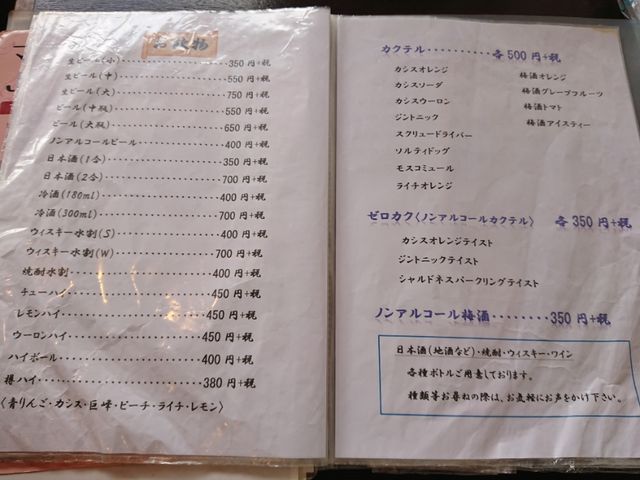 お飲物
生ビール(小)・・・・・・・・・・・・・・・350円+税
生ビール(中)・・・・・・・・・・・・・・・550円+税
生ビール(大)・・・・・・・・・・・・・・・750円+税
ビール(中瓶)・・・・・・・・・・・・・・・550円+税
ビール(大瓶)・・・・・・・・・・・・・・・650円+税
ノンアルコールビール・・・・・・・・・・400円+税
日本酒(1合)・・・・・・・・・・・・・・・350円+税
日本酒(2合)・・・・・・・・・・・・・・・700円+税
冷酒(180ml)・・・・・・・・・・・・・・・400円+税
冷酒(300ml)・・・・・・・・・・・・・・・700円+税
ウィスキー水割(S)・・・・・・・・・・・・400円+税
ウィスキー水割(W)・・・・・・・・・・・・700円+税
焼酎水割・・・・・・・・・・・・・・・・・400円+税
チューハイ・・・・・・・・・・・・・・・・450円+税
レモンハイ・・・・・・・・・・・・・・・・450円+税
ウーロンハイ・・・・・・・・・・・・・・・450円+税
ハイボール・・・・・・・・・・・・・・・・400円+税
樽ハイ・・・・・・・・・・・・・・・・・・380円+税
〈青りんご・カシス・巨峰・ピーチ・ライチ・レモン〉
カクテル・・・・・・・・・各500円+税
カシスオレンジ
カシスソーダ
カシスウーロン
ジントニック
スクリュードライバー
ソルティドッグ
モスコミュール
ライチオレンジ
梅酒オレンジ
梅酒グレープフルーツ
梅酒トマト
梅酒アイスティー
ゼロカク〈ノンアルコールカクテル〉 各350円+税
カシスオレンジテイスト
ジントニックテイスト
シャルドネスパークリングテイスト
ノンアルコール梅酒・・・・・・・・350円+税
日本酒(地酒など)・焼酎・ウィスキー・ワイン
各種ボトルご用意しております。
種類等お尋ねの際は、お気軽にお声をかけ下さい。